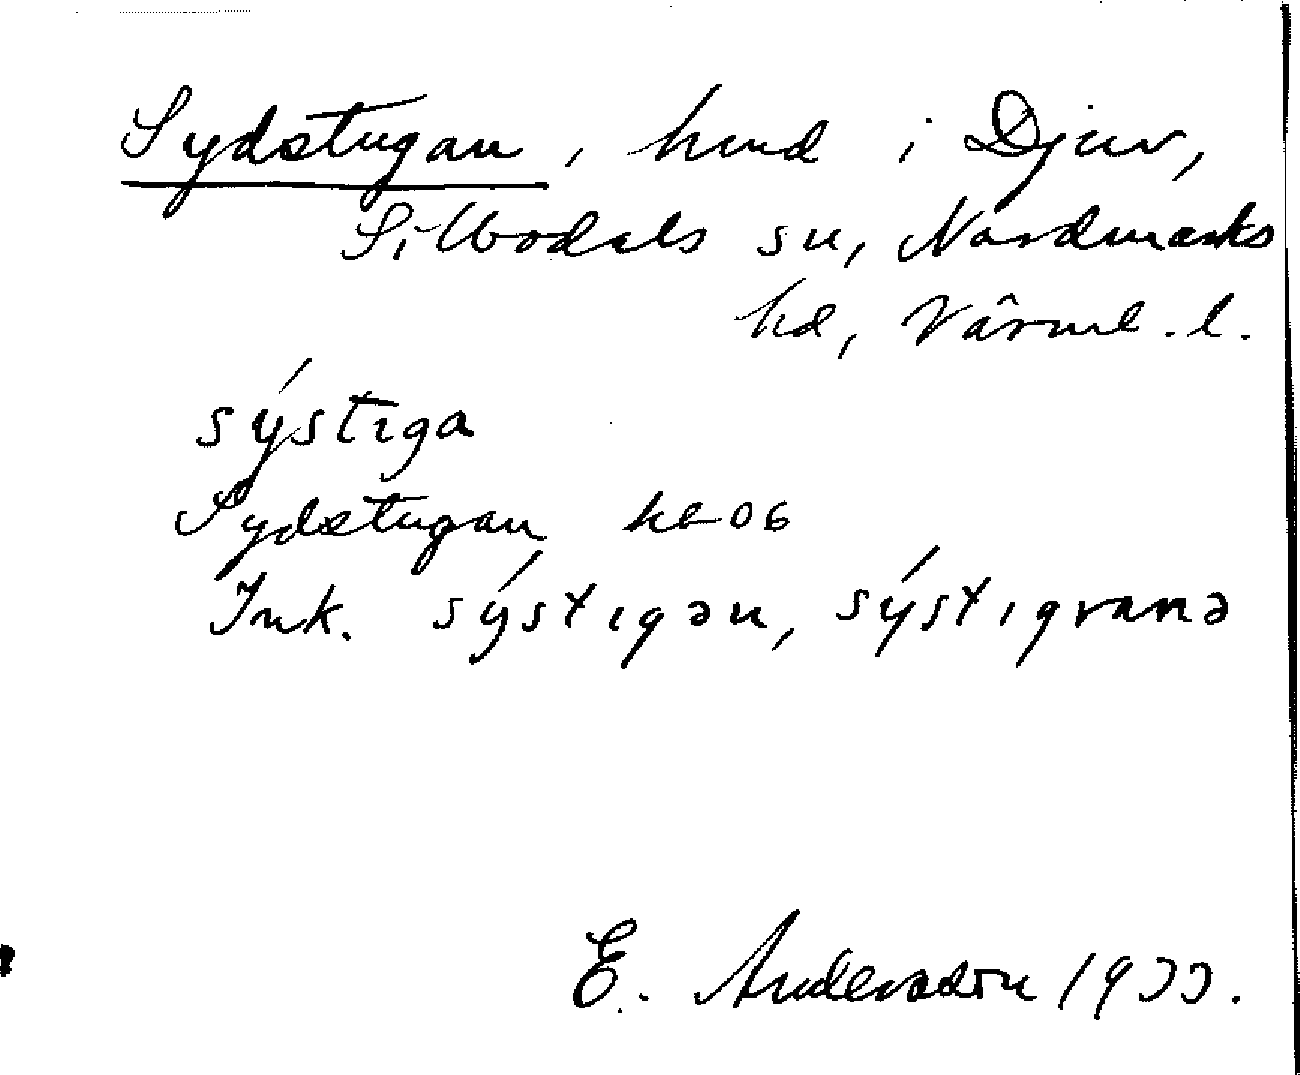 Sydstugan, hmd i Djuv,
Silbodals sn, Nordmarks
hd, Värml. l.
sýstıga
Sydstugan kb 06
Ink. sýstıgən, sýstıgranə
E. Andersson 1933.